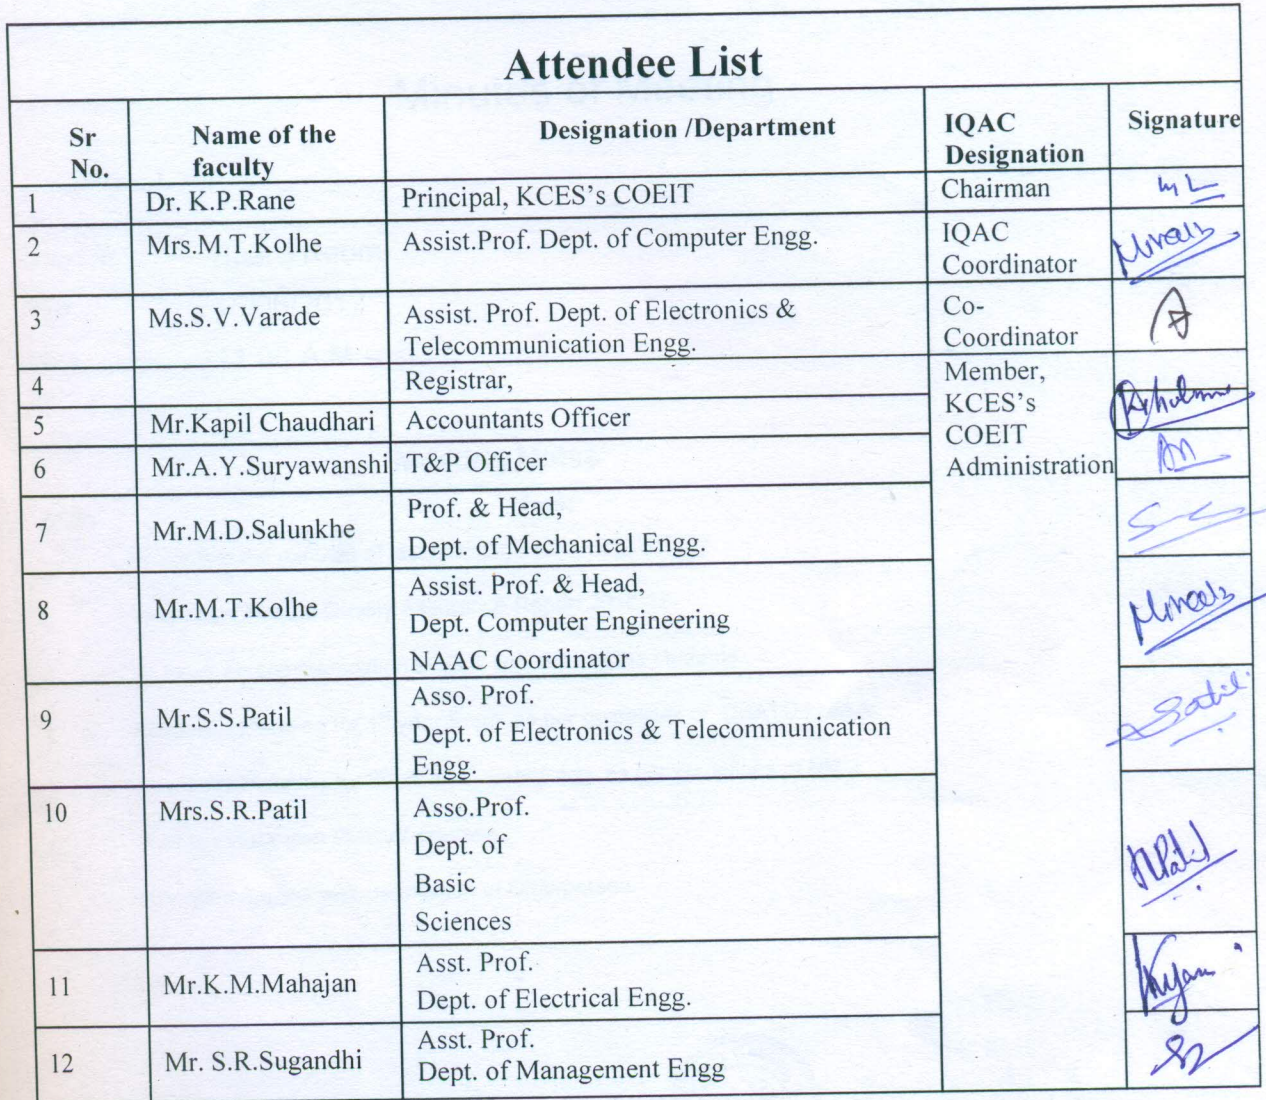 Attendee List
Sr No. Name of the faculty Designation /Department IQAC Designation Signature
1 Dr. K.P.Rane Principal, KCES's COEIT Chairman
2 Mrs.M.T.Kolhe Assist.Prof. Dept. of Computer Engg. IQAC
Coordinator
3 Ms.S.V.Varade Assist. Prof. Dept. of Electronics & Co-
Telecommunication Engg. Coordinator
4 Registrar, Member,
KCES's
5 Mr.Kapil Chaudhari Accountants Officer COEIT
6 Mr.A.Y.Suryawanshi T&P Officer Administration
7 Mr.M.D.Salunkhe Prof. & Head,
Dept. of Mechanical Engg.
8 Mr.M.T.Kolhe Assist. Prof. & Head,
Dept. Computer Engineering
NAAC Coordinator
9 Mr.S.S.Patil Asso. Prof.
Dept. of Electronics & Telecommunication
Engg.
10 Mrs.S.R.Patil Asso.Prof.
Dept. of
Basic
Sciences
11 Mr.K.M.Mahajan Asst. Prof.
Dept. of Electrical Engg.
12 Mr. S.R.Sugandhi Asst. Prof.
Dept. of Management Engg